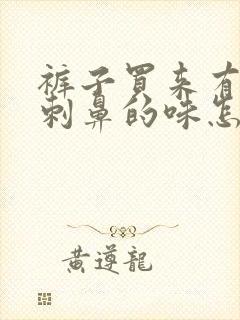 裤子買来有
刺鼻的味怎
黄遵龍